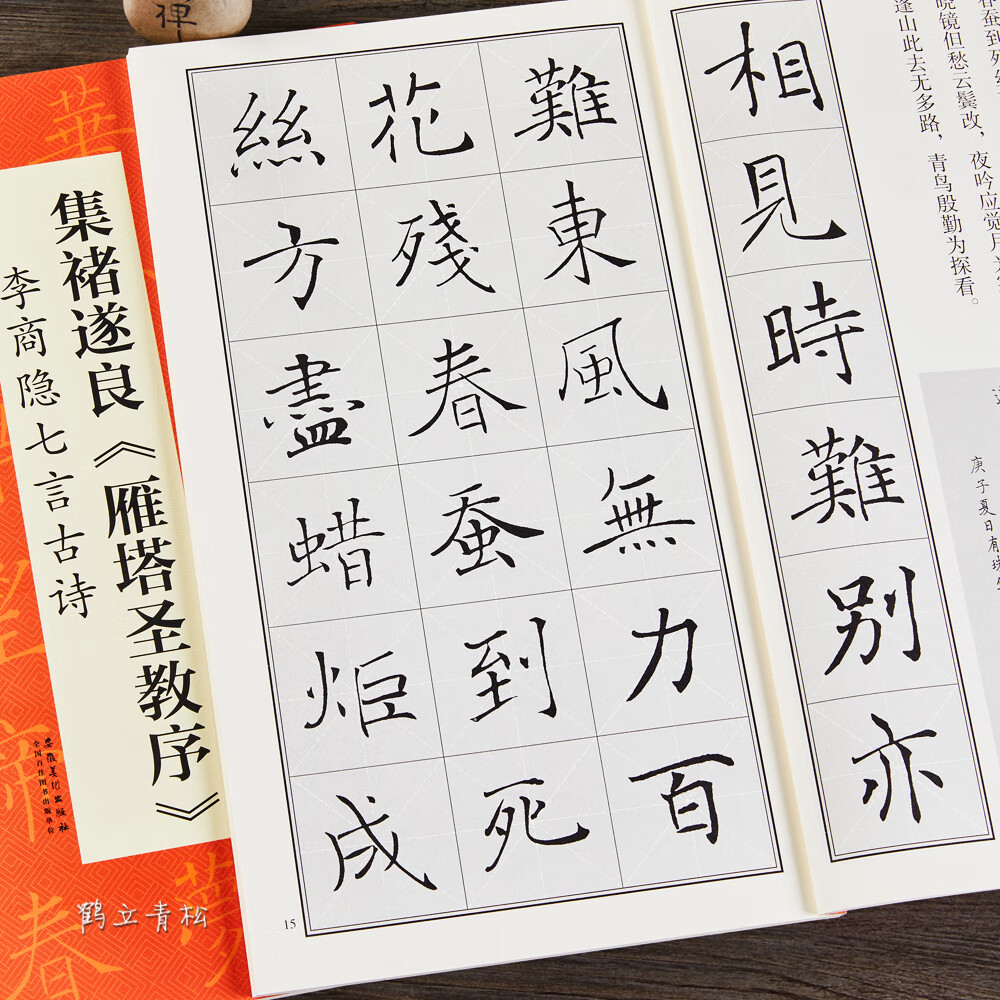 禪
春蚕到死
晓镜但愁云鬓改，夜吟应觉月
蓬山此去无多路，青鸟殷勤为探看。
庚子夏日有
相見時難别亦
難東風無力百
花殘春蚕到死
絲方盡蜡炬成
15
集褚遂良《雁塔圣教序》
李商隐七言古诗
安徽美術出版社
全国百佳图书出版单位
華
春
鹤立青松